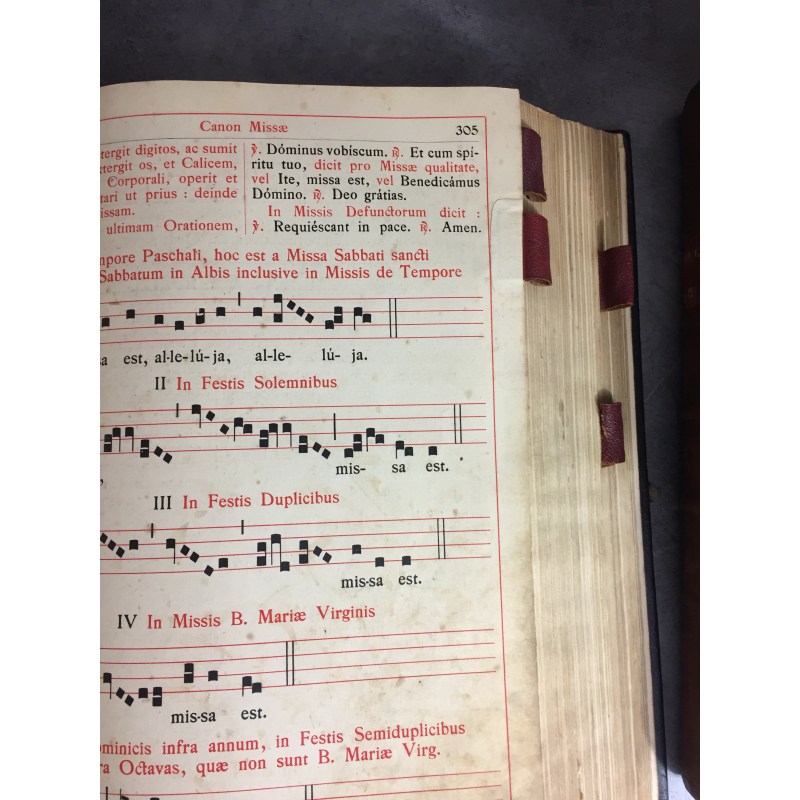 Canon Missæ 305
tergit digitos, ac sumit
os, et Calicem,
Corporali, operit et
ut prius : deinde
ultimam Orationem,
℣. Dóminus vobíscum. ℟. Et cum spí-
ritu tuo, dicit pro Missæ qualitate,
vel Ite, missa est, vel Benedicámus
Dómino. ℟. Deo grátias.
In Missis Defunctorum dicit :
℣. Requiéscant in pace. ℟. Amen.
Paschali, hoc est a Missa Sabbati sancti
Sabbatum in Albis inclusive in Missis de Tempore
est, al-le-lú-ja, al-le- lú- ja.
II In Festis Solemnibus
mis- sa est.
III In Festis Duplicibus
mis-sa est.
IV In Missis B. Mariæ Virginis
mis-sa est.
infra annum, in Festis Semiduplicibus
Octavas, quæ non sunt B. Mariæ Virg.